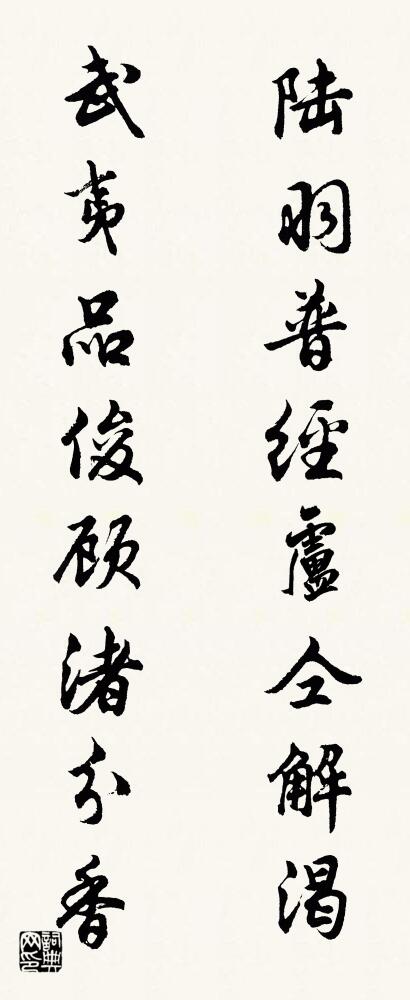 陆羽普經盧仝解渴
武夷品俊顾渚分香
詞典网印